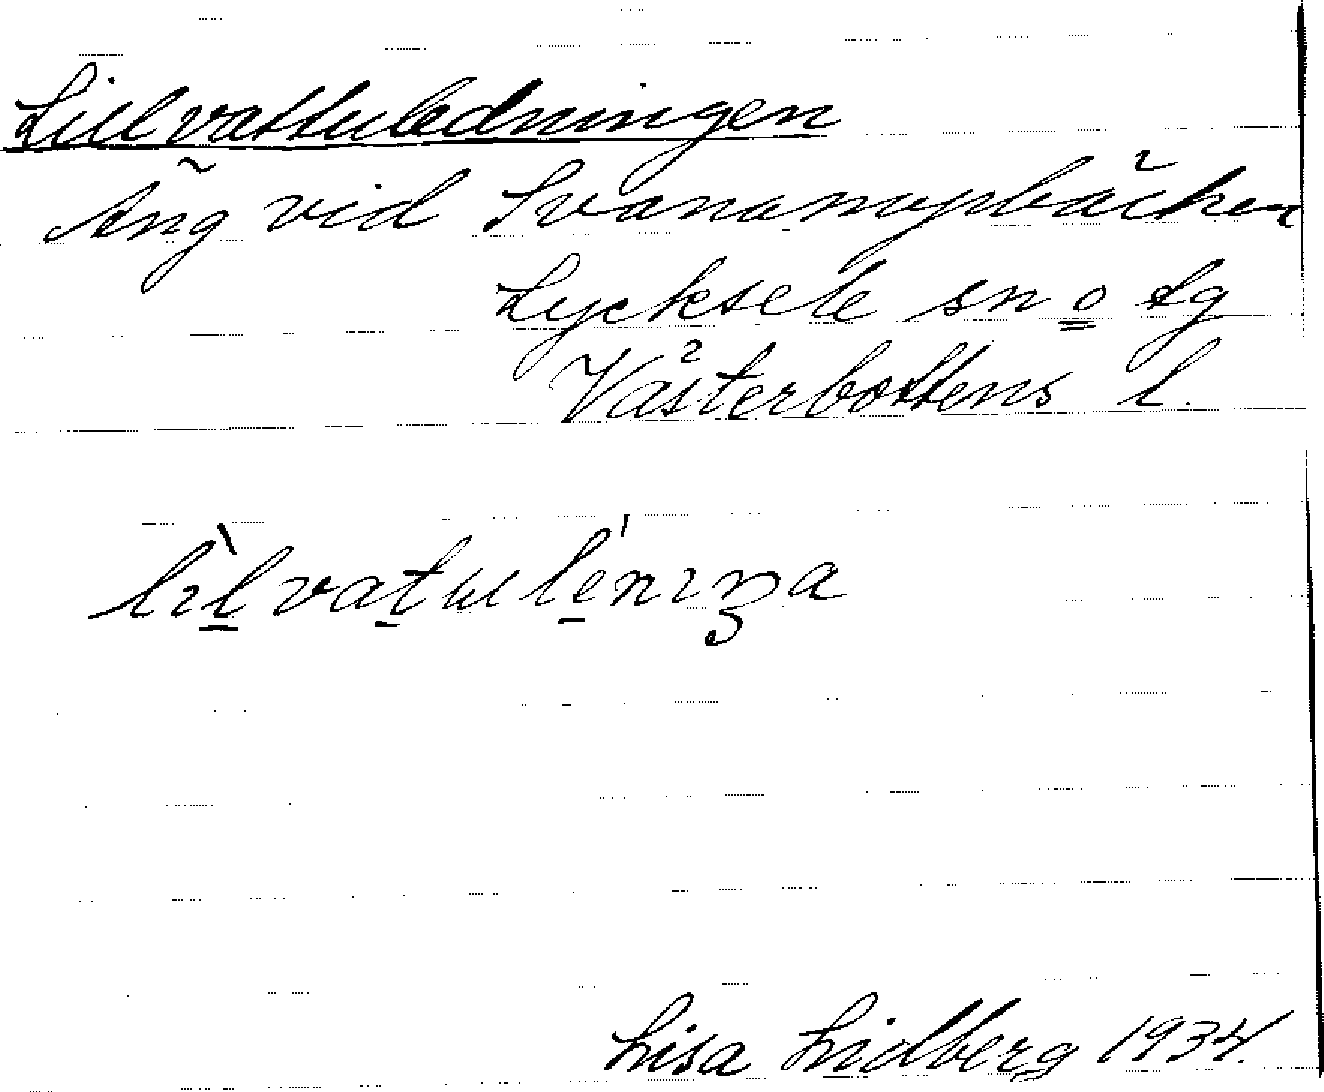 Lillvattuledningen
Äng vid Svanamyrbäcken
Lycksele sn o tg
Västerbottens l.
Lisa Lidberg 1934.